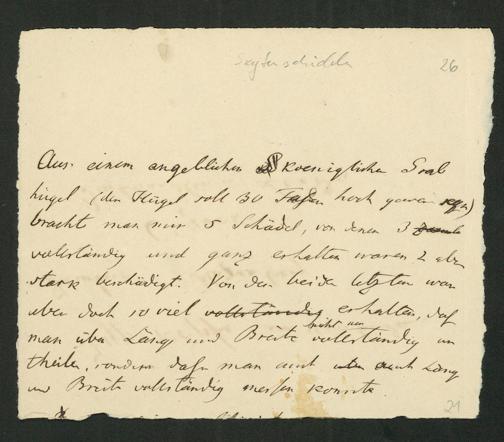 Skythenschädel
26
Aus einem angeblichen koeniglichen Grab
hügel (der Hügel soll 30 hoch gewesen seyn)
bracht man mir 5 Schädel, von denen 3
vollständig und ganz erhalten waren 2 aber
stark beschädigt. Von den beiden letzten war
aber doch so viel vollständig erhalten, daß
man über Länge und Breite nicht nur vollständig ur
theilen, sondern daß man auch Läng
und Breite vollständig messen konnte.
21